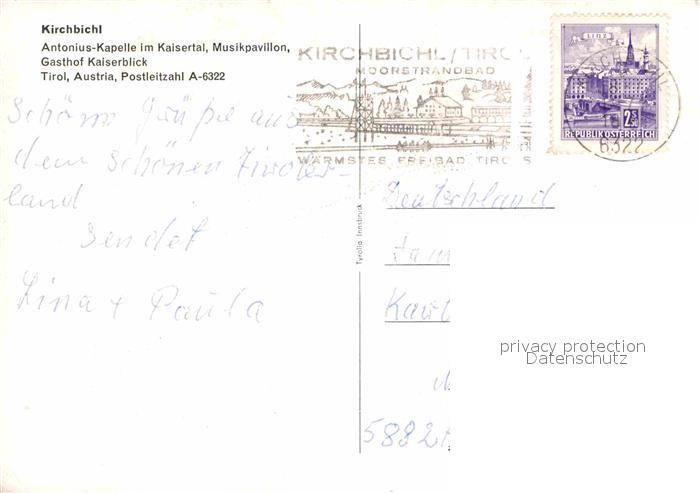 Kirchbichl
Antonius-Kapelle im Kaisertal, Musikpavillon,
Gasthof Kaiserblick
Tirol, Austria, Postleitzahl A-6322
KIRCHBICHL/TIROL
MOORSTRANDBAD
WÄRMSTES FREIBAD TIROLS
LINZ
2.50
REPUBLIK ÖSTERREICH
6322
Schöne Grüße aus
dem schönen Tiroler-
land
sendet
Lina + Paula
Tyrolia Innsbruck
Deutschland
Fam
privacy protection
Datenschutz
5882